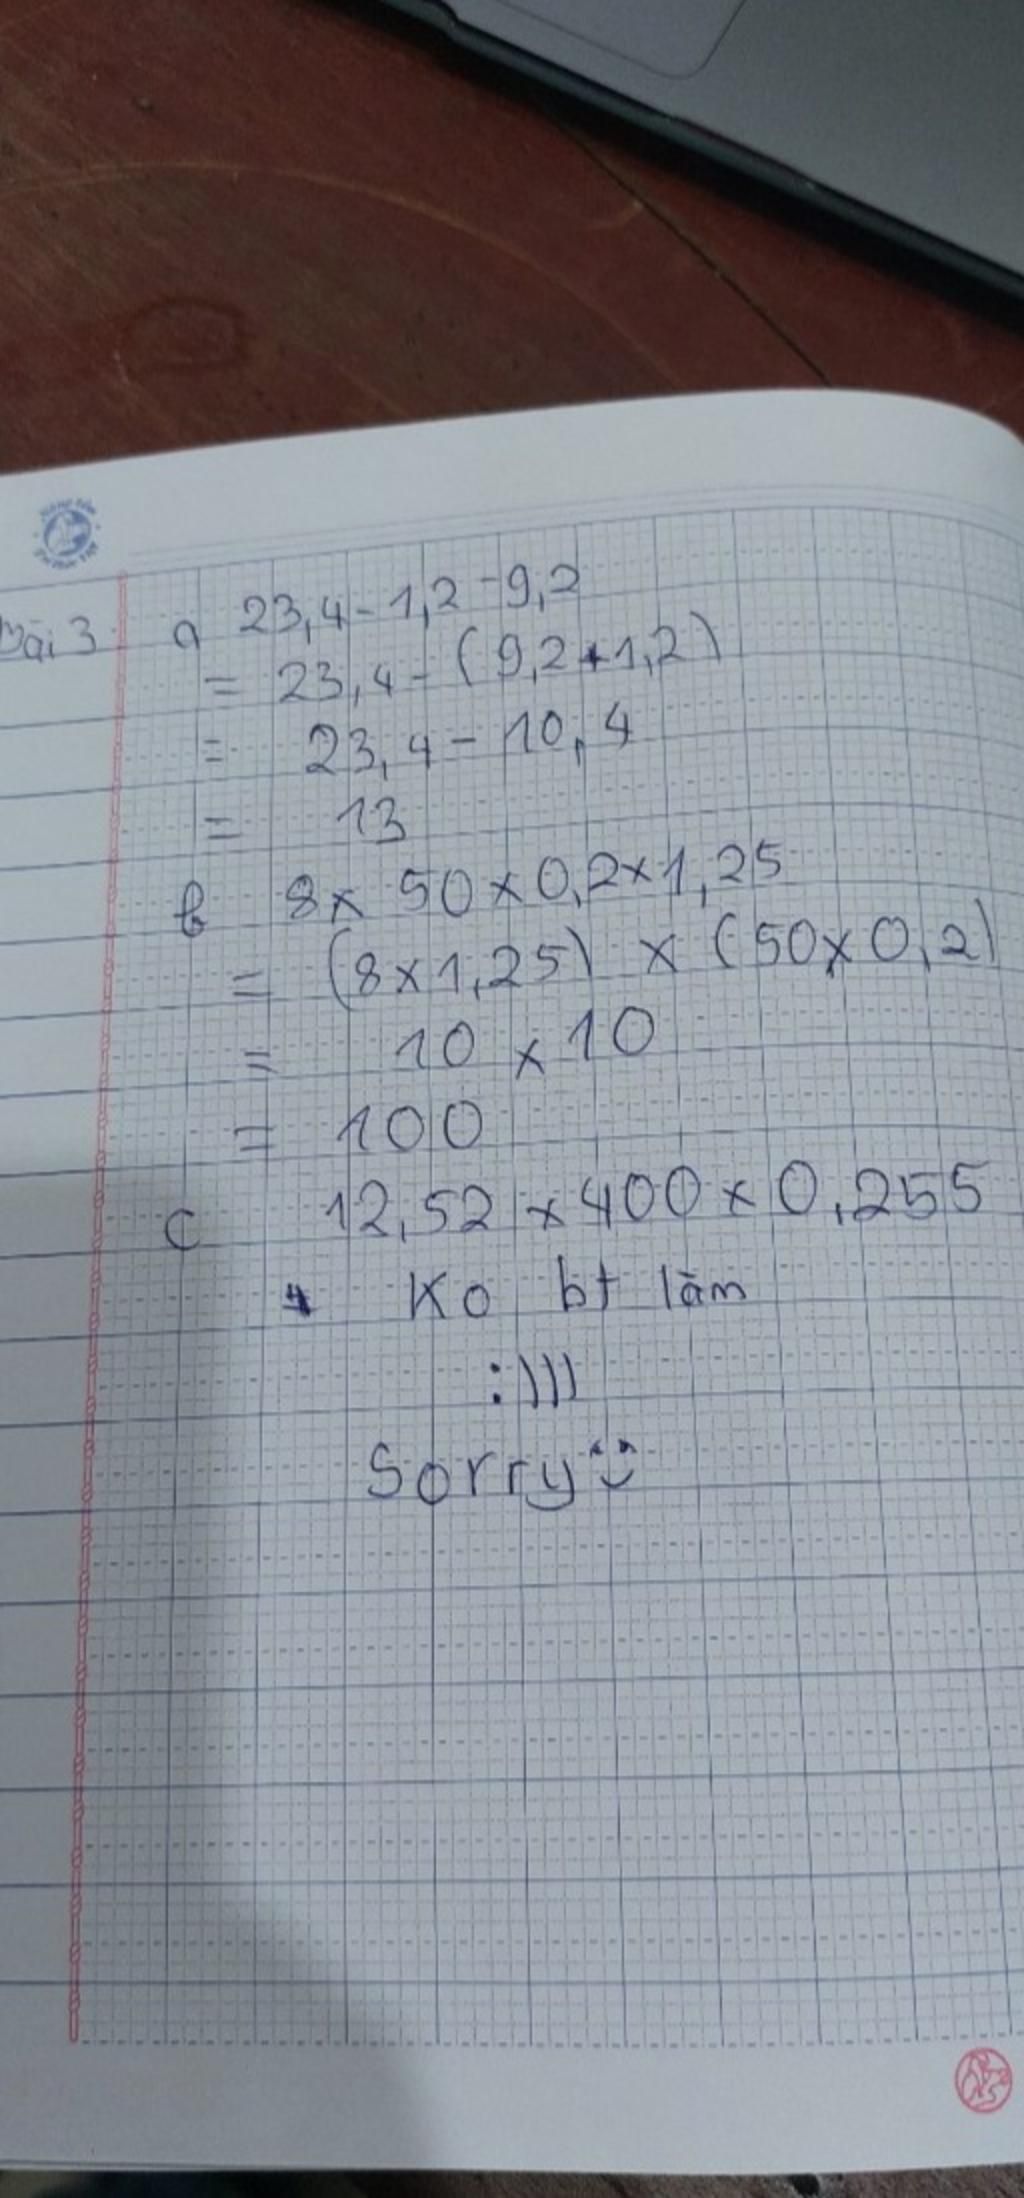 Bài 3 a 23,4 - 1,2 - 9,2
= 23,4 - (9,2 + 1,2)
= 23,4 - 10,4
= 13
b 8 x 50 x 0,2 x 1,25
= (8 x 1,25) x (50 x 0,2)
= 10 x 10
= 100
c 12,52 x 400 x 0,255
Ko bt làm
:)))
Sorry